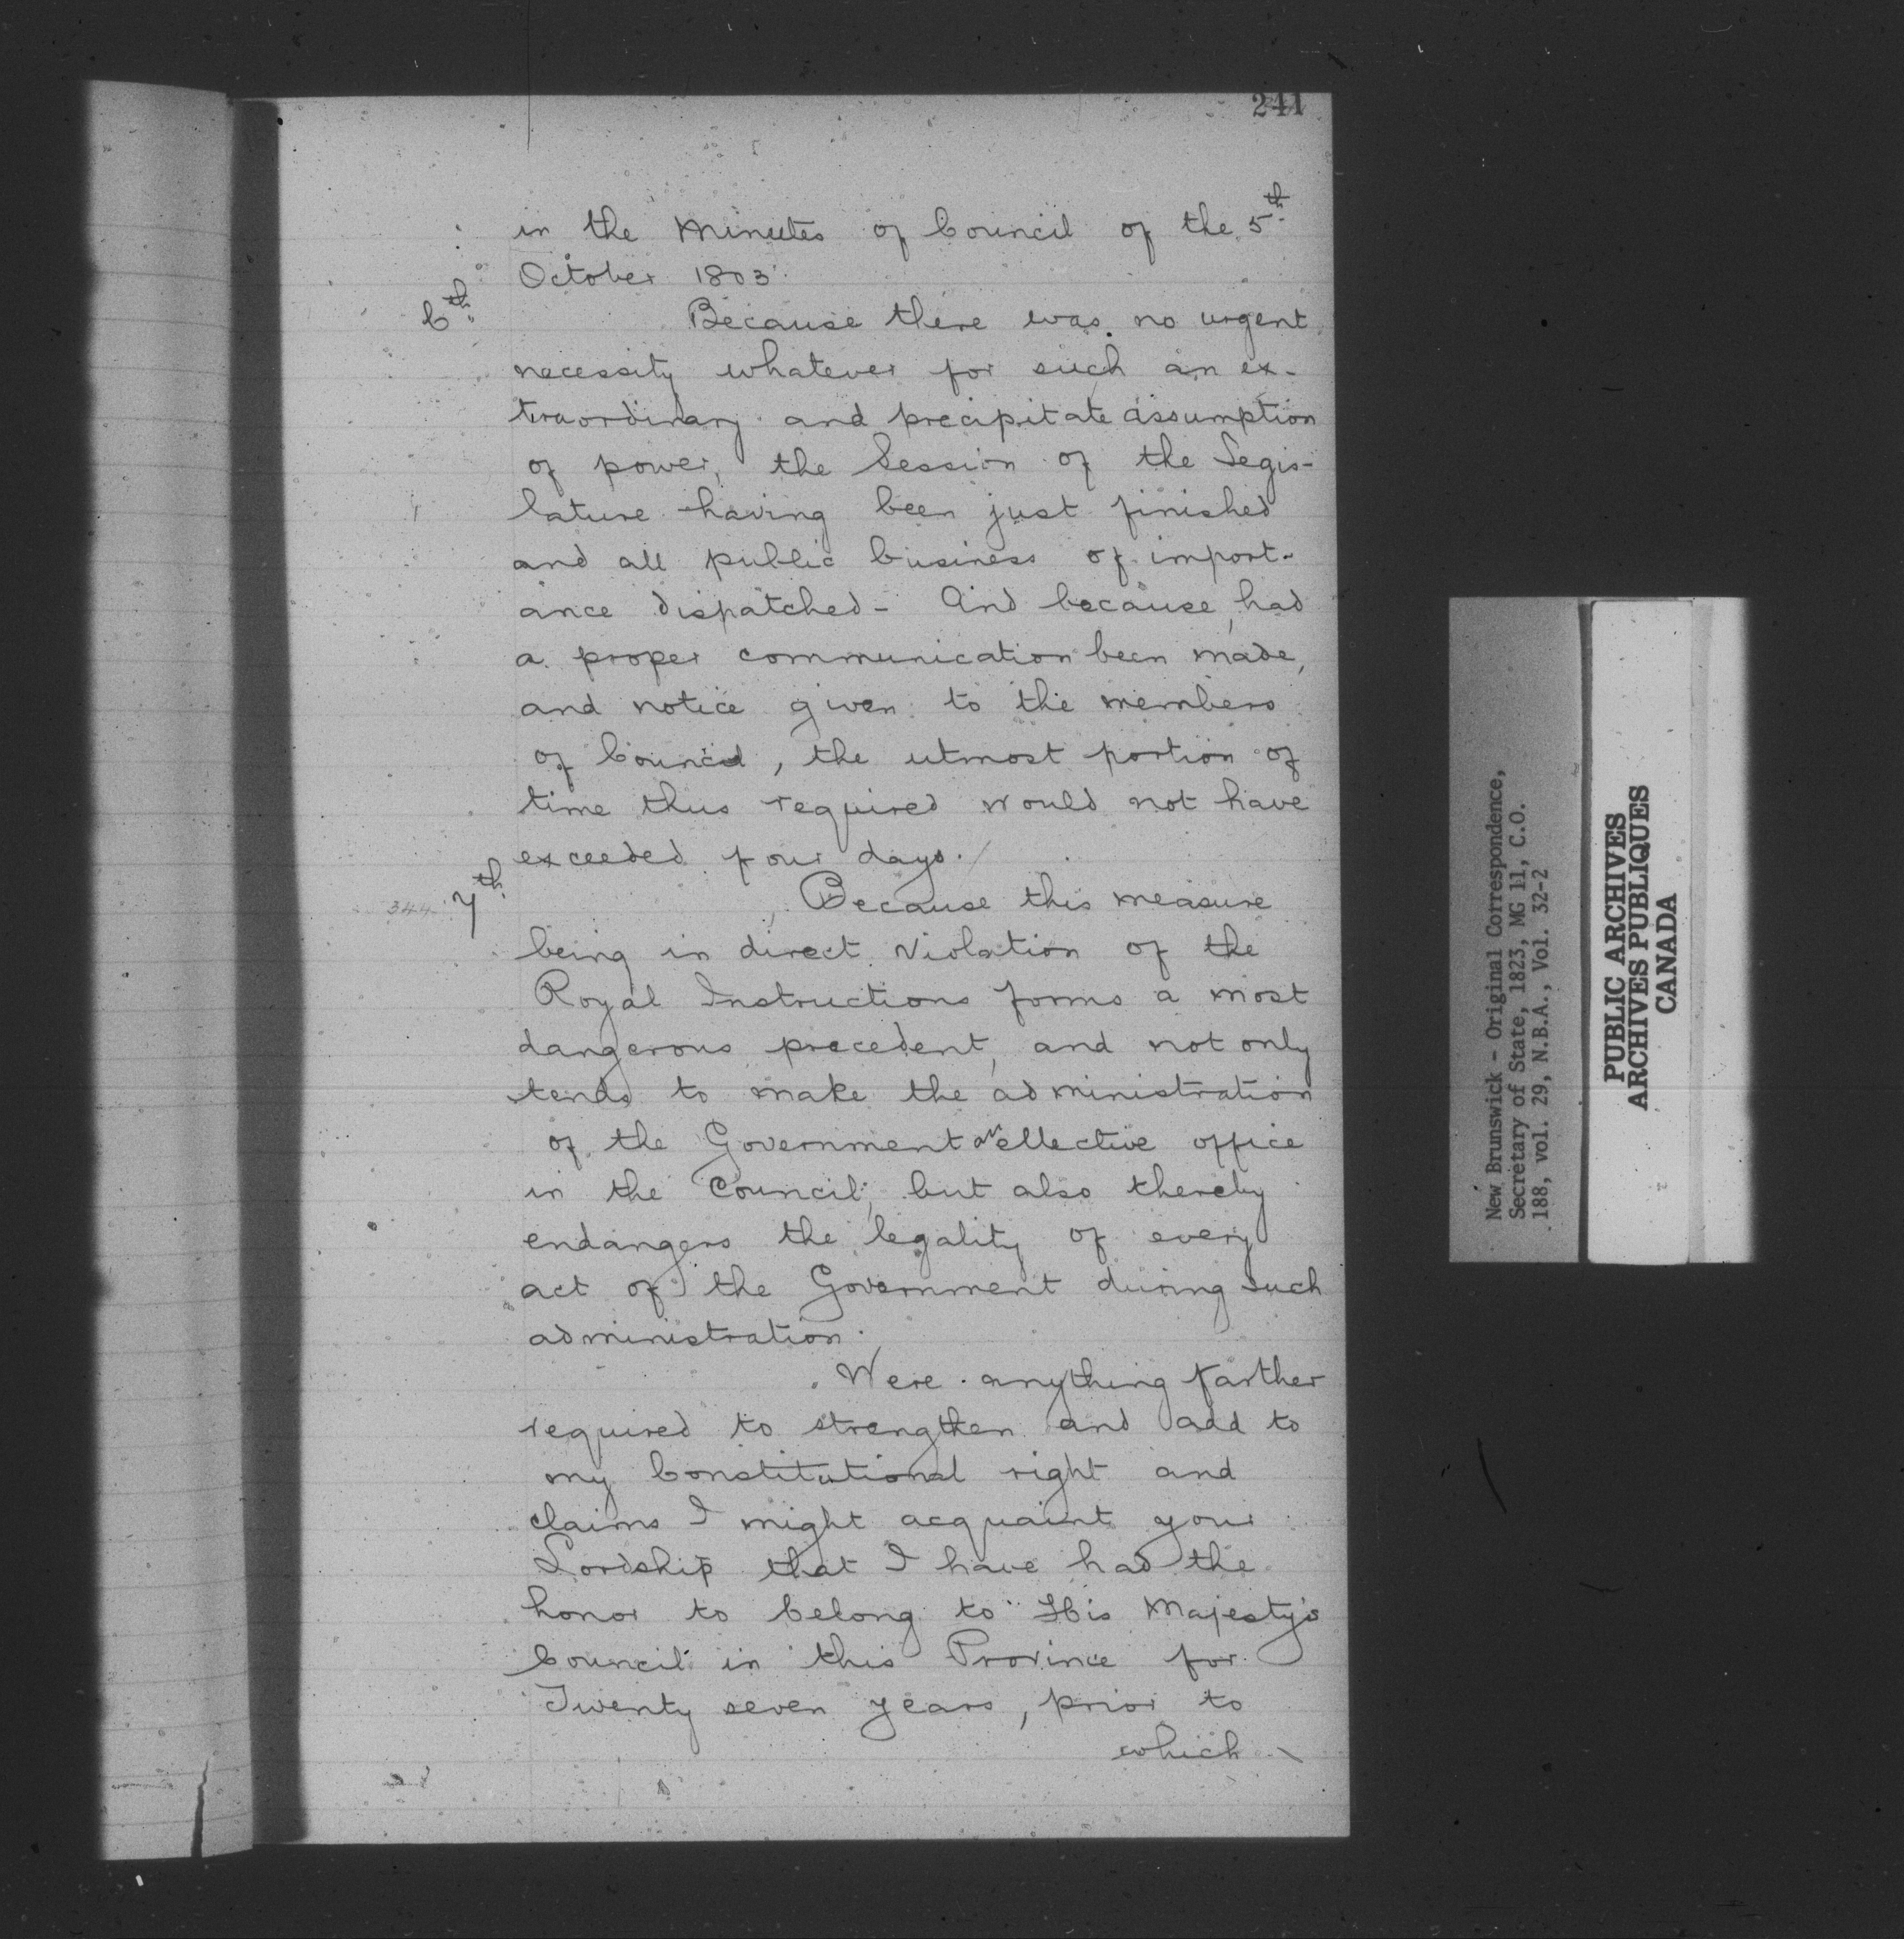 241
in the Minutes of Council of the 5th
October 1803.
6th
Because there was no urgent
necessity whatever for such an ex-
traordinary and precipitate assumption
of power, the Session of the Legis-
lature having been just finished
and all public business of import-
ance dispatched - And because, had
a proper communication been made,
and notice given to the members
of Council, the utmost portion of
time thus required would not have
exceeded four days.
344 7th
Because this measure
being in direct violation of the
Royal Instructions forms a most
dangerous precedent, and not only
tends to make the administration
of the Government an ellective office
in the Council, but also thereby
endangers the legality of every
act of the Government during such
administration.
Were anything farther
required to strengthen and add to
my Constitutional right and
claims I might acquaint your
Lordship that I have had the
honor to belong to His Majesty's
Council in this Province for
Twenty seven years, prior to
which
New Brunswick - Original Correspondence,
Secretary of State, 1823, MG 11, C.O.
188, vol. 29, N.B.A., Vol. 32-2
PUBLIC ARCHIVES
ARCHIVES PUBLIQUES
CANADA